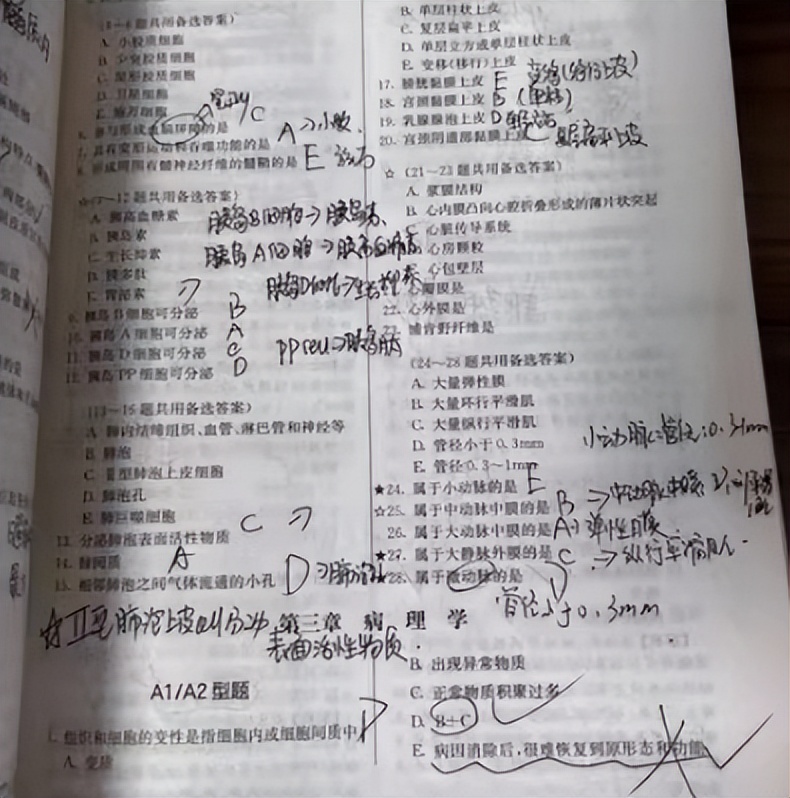 (4~6题共用备选答案)
A. 小胶质细胞
B. 少突胶质细胞
C. 星形胶质细胞
D. 卫星细胞
E. 施万细胞
C
6. 参与形成血脑屏障的是
7. 具有变形运动和吞噬功能的是 A→小胶
8. 形成周围有髓神经纤维的髓鞘的是 E 施万
☆(9~12题共用备选答案)
A. 胰高血糖素
B. 胰岛素 胰岛B细胞→胰岛素
C. 生长抑素 胰岛A细胞→胰高血糖素
D. 胰多肽
E. 胃泌素 胰岛D细胞→生长抑素
9. 胰岛B细胞可分泌 B
10. 胰岛A细胞可分泌 A
11. 胰岛D细胞可分泌 C
12. 胰岛PP细胞可分泌 D
(13~15题共用备选答案)
A. 肺内结缔组织、血管、淋巴管和神经等
B. 肺泡
C. Ⅱ型肺泡上皮细胞
D. 肺泡孔
E. 肺巨噬细胞
13. 分泌肺泡表面活性物质 C
14. 肺间质 A
15. 相邻肺泡之间气体流通的小孔 D
☆Ⅱ型肺泡上皮细胞分泌
表面活性物质
B. 单层柱状上皮
C. 复层扁平上皮
D. 单层立方或单层柱状上皮
E. 变移(移行)上皮
17. 膀胱黏膜上皮 E 变移(移行上皮)
18. 宫颈黏膜上皮 B (单柱)
19. 乳腺腺泡上皮 D
20. 宫颈阴道部黏膜上皮 C 复层扁平上皮
☆(21~23题共用备选答案)
A. 浆膜结构
B. 心内膜凸向心腔折叠形成的薄片状突起
C. 心脏传导系统
D. 心房颗粒
E. 心包壁层
21. 心瓣膜是
22. 心外膜是
23. 浦肯野纤维是
(24~28题共用备选答案)
A. 大量弹性膜
B. 大量环行平滑肌
C. 大量纵行平滑肌
D. 管径小于0.3mm
E. 管径0.3~1mm
小动脉:管径:0.3~1mm
★24. 属于小动脉的是 E
☆25. 属于中动脉中膜的是 B
26. 属于大动脉中膜的是 A→弹性膜
★27. 属于大静脉外膜的是 C →纵行平滑肌
★28. 属于微动脉的是 D
管径小于0.3mm
第三章 病理学
A1/A2型题
1. 组织和细胞的变性是指细胞内或细胞间质中 D
A. 变质
B. 出现异常物质
C. 正常物质积聚过多
D. B+C
E. 病因消除后,很难恢复到原形态和功能